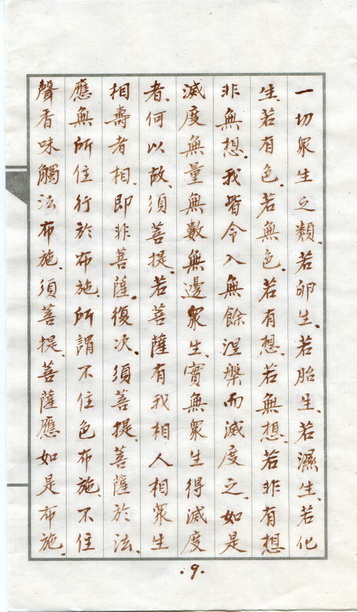 一切眾生之類、若卵生、若胎生、若濕生、若化
生、若有色、若無色、若有想、若無想、若非有想
非無想、我皆令入無餘涅槃而滅度之、如是
滅度無量無數無邊眾生、實無眾生得滅度
者、何以故、須菩提、若菩薩有我相人相眾生
相壽者相、即非菩薩、復次、須菩提、菩薩於法、
應無所住行於布施、所謂不住色布施、不住
聲香味觸法布施、須菩提、菩薩應如是布施、
·9·